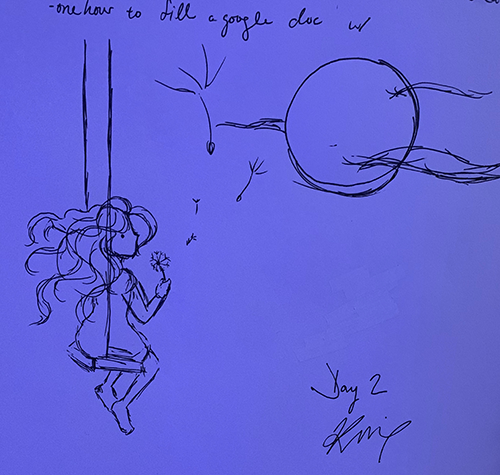 -one hour to fill a google doc w/
Day 2